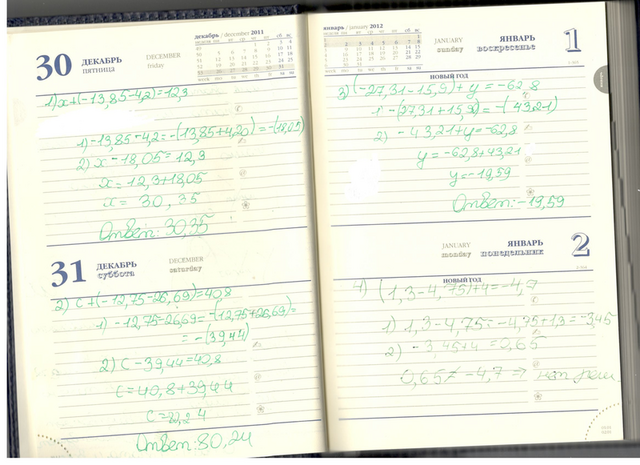 30 ДЕКАБРЬ DECEMBER
пятница friday
декабрь / december 2011
1) x+(-13,85-4,2)=12,3
1) -13,85-4,2=-(13,85+4,20)=-(18,05)
2) x-18,05=12,3
x=12,3+18,05
x= 30,35
Ответ: 30,35
31 ДЕКАБРЬ DECEMBER
суббота saturday
2) c+(-12,75-26,69)=40,8
1) -12,75-26,69=-(12,75+26,69)=
= -(39,44)
2) c-39,44=40,8
c=40,8+39,44
Ответ: 80,24
январь / january 2012
JANUARY ЯНВАРЬ 1
sunday воскресенье
НОВЫЙ ГОД
3) (-27,31-15,9)+y=-62,8
1 -(27,31+15,9)=-(43,21)
2) -43,21+y=-62,8
y=-62,8+43,21
y=-19,59
Ответ: -19,59
JANUARY ЯНВАРЬ 2
monday понедельник
НОВЫЙ ГОД
4) (1,3-4,75)+4=-4,7
1) 1,3-4,75=-4,75+1,3=-3,45
2) -3,45+4=0,65
0,65≠-4,7 ⇒ нет реш.